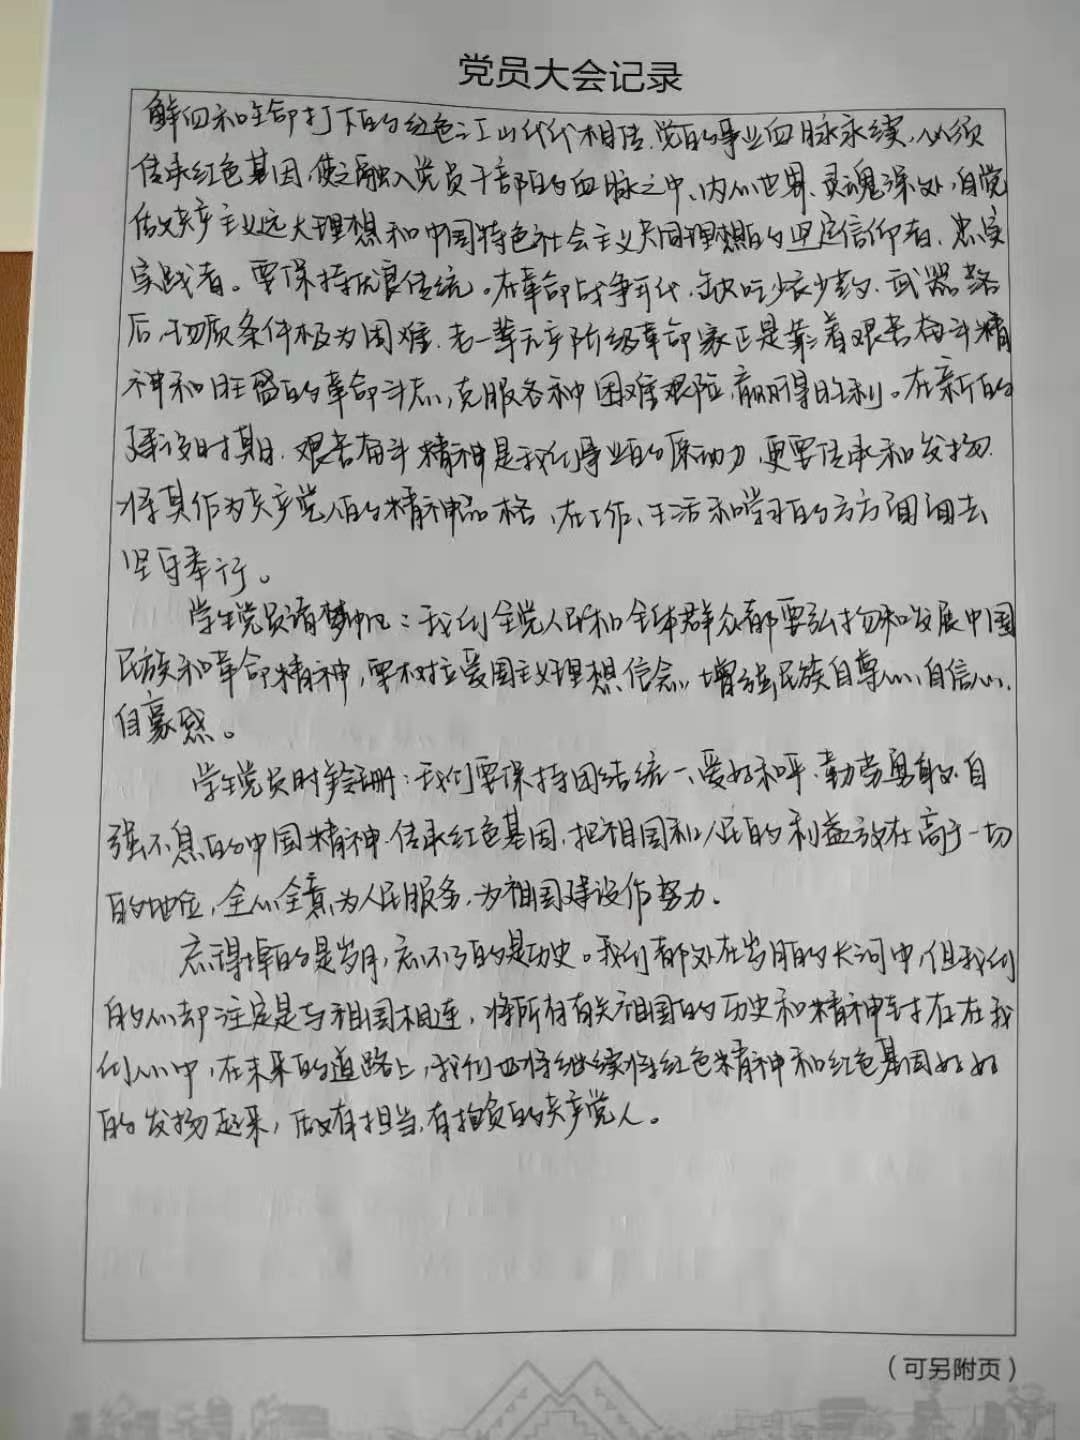 党员大会记录
鲜血和生命打下的红色江山代代相传、党的事业血脉永续,必须
传承红色基因,使之融入党员干部的血脉之中、内心世界、灵魂深处,自觉
做共产主义远大理想和中国特色社会主义共同理想的坚定信仰者、忠实
实践者。要保持优良传统。在革命战争年代,缺吃少衣少药、武器落
后,物质条件极为困难,老一辈无产阶级革命家正是靠着艰苦奋斗精
神和旺盛的革命斗志,克服各种困难艰险,赢得胜利。在新的
建设时期,艰苦奋斗精神是我们事业的原动力,更要传承和发扬,
将其作为共产党人的精神品格,在工作、生活和学习的方方面面去
坚守奉行。
学生党员诸梦帆:我们全党人民和全体群众都要弘扬和发展中国
民族和革命精神,要树立爱国主义理想信念,增强民族自尊心、自信心、
自豪感。
学生党员时铃珊:我们要保持团结统一、爱好和平、勤劳勇敢、自
强不息的中国精神,传承红色基因,把祖国和人民的利益放在高于一切
的地位,全心全意为人民服务,为祖国建设作努力。
忘得掉的是岁月,忘不了的是历史。我们都处在岁月的长河中,但我们
的心却注定是与祖国相连,将所有有关祖国的历史和精神封存在我
们心中,在未来的道路上,我们也将继续将红色精神和红色基因好好
的发扬起来,做有担当,有抱负的共产党人。
(可另附页)